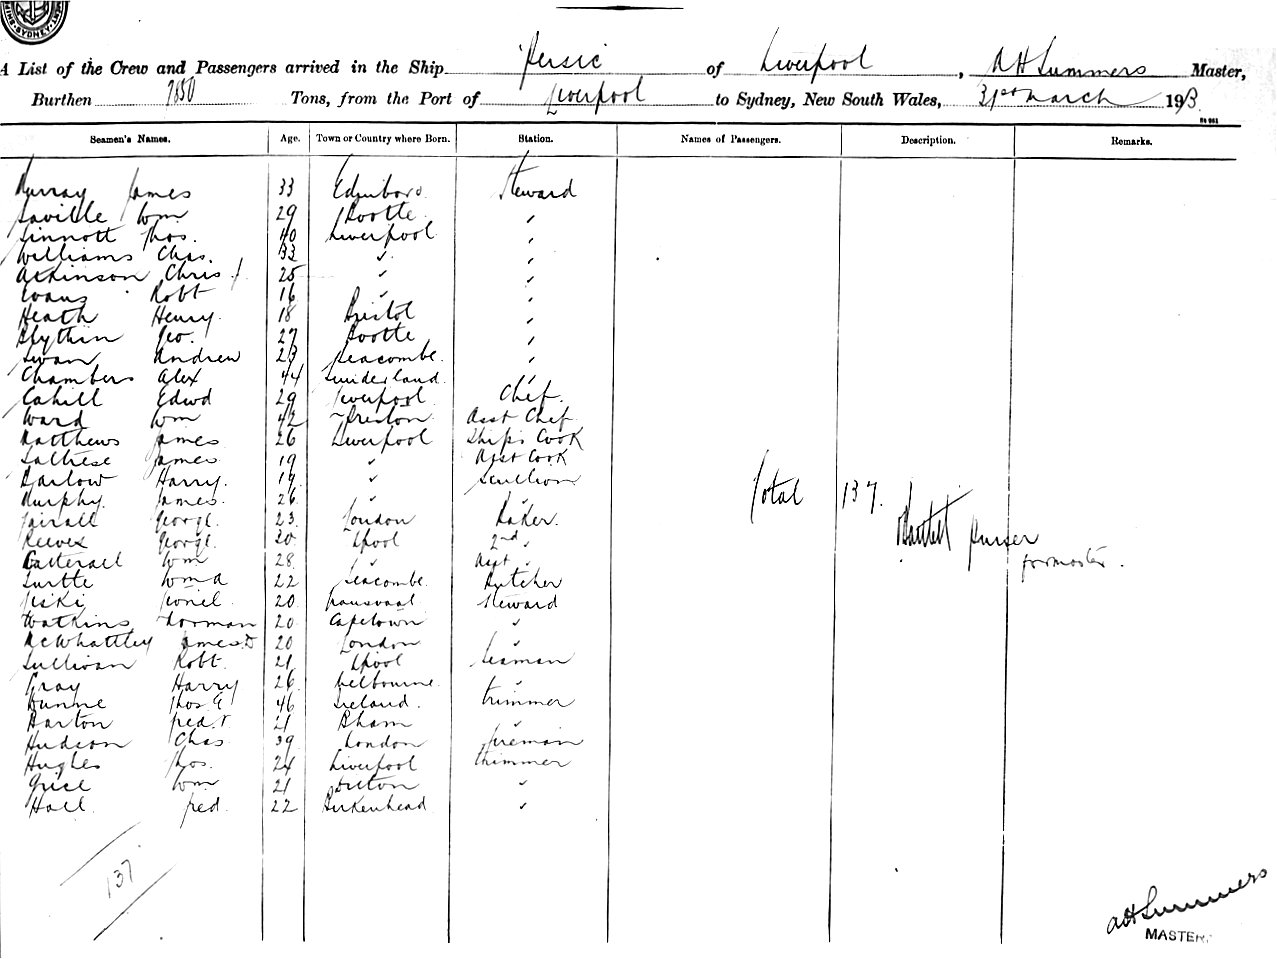 SYDNEY
A List of the Crew and Passengers arrived in the Ship Persic of Liverpool, AH Summers Master,
Burthen 7850 Tons, from the Port of Liverpool to Sydney, New South Wales, 31st March 193
Seamen's Names. Age. Town or Country where Born. Station. Names of Passengers. Description. Remarks.
Murray James 33 Edinboro Steward
Saville Wm 29 Bootle "
Sinnott Thos. 40 Liverpool "
Williams Chas. 33 " "
Atkinson Chris 25 " "
Evans Robt 16 " "
Heath Henry 18 Bristol "
Blythin Geo. 27 Bootle "
Swan Andrew 23 Seacombe "
Chambers Alex 44 Sunderland "
Cahill Edwd 29 Liverpool Chef
Ward Wm 42 Preston Asst Chef
Matthews James 26 Liverpool Ship's Cook
James 19 " Asst Cook
Barlow Harry. 19 " Scullion
Murphy James. 26 " "
Fairall George. 23 London Baker.
Reeves George. 30 Lpool 2nd "
Catterall Wm 28 " Asst "
Surtte Wm A 22 Seacombe Butcher
Lionel 20 Transvaal Steward
Watkins Norman 20 Capetown "
McWhattley James D 20 London "
Sullivan Robt. 21 Lpool Seaman
Gray Harry 26 Melbourne "
Dunne Thos. G 46 Ireland. Trimmer
Barton Fred. 21 Bham "
Hudson Chas 39 London Fireman
Hughes Thos. 24 Liverpool Trimmer
Grice Wm 21 "
Hall Fred. 22 Birkenhead "
Total 137.
Bartlett Purser
for master.
137
AH Summers
MASTER.